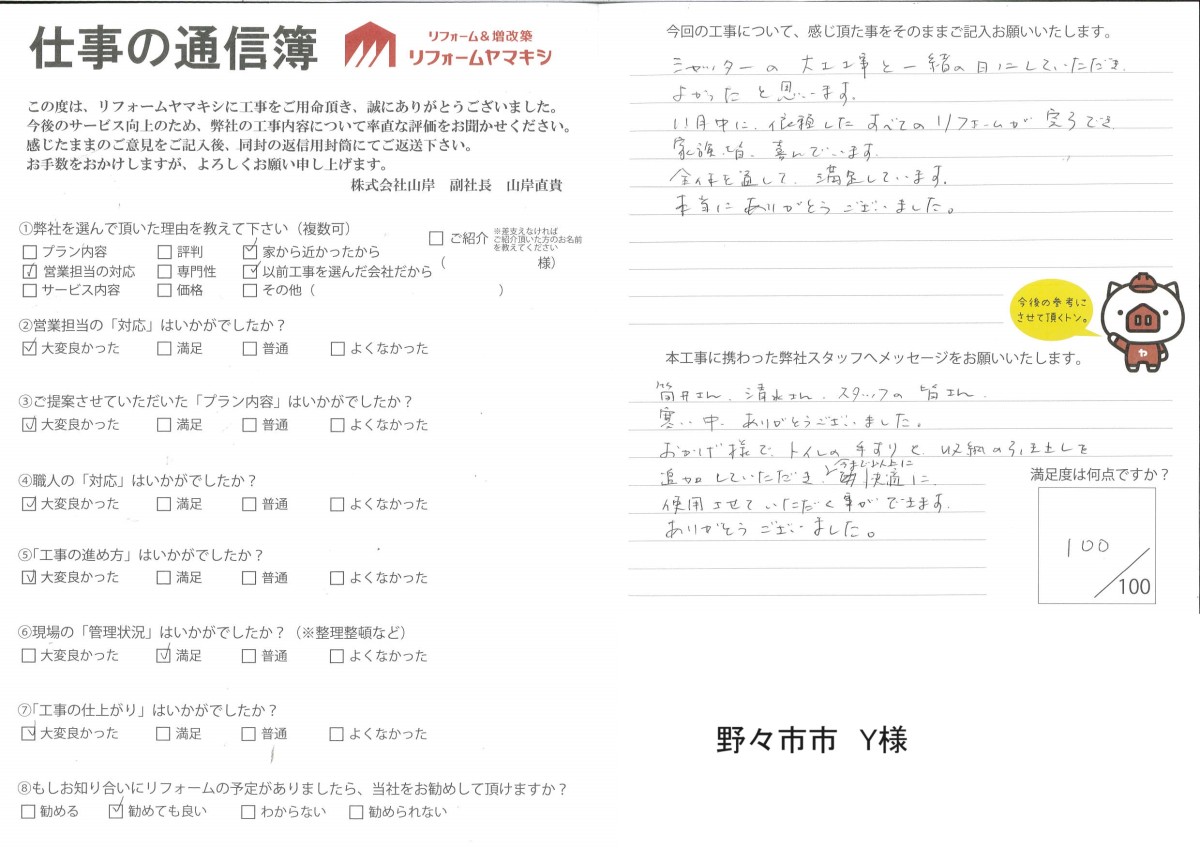 仕事の通信簿
リフォーム&増改築
リフォームヤマキシ
この度は、リフォームヤマキシに工事をご用命頂き、誠にありがとうございました。
今後のサービス向上のため、弊社の工事内容について率直な評価をお聞かせください。
感じたままのご意見をご記入後、同封の返信用封筒にてご返送下さい。
お手数をおかけしますが、よろしくお願い申し上げます。
株式会社山岸 副社長 山岸直貴
①弊社を選んで頂いた理由を教えて下さい(複数可)
□プラン内容 □評判 ☑家から近かったから
☑営業担当の対応 □専門性 ☑以前工事を選んだ会社だから
□サービス内容 □価格 □その他( )
□ご紹介
※差支えなければ
ご紹介頂いた方のお名前
を教えてください
( 様)
②営業担当の「対応」はいかがでしたか?
☑大変良かった □満足 □普通 □よくなかった
③ご提案させていただいた「プラン内容」はいかがでしたか?
☑大変良かった □満足 □普通 □よくなかった
④職人の「対応」はいかがでしたか?
☑大変良かった □満足 □普通 □よくなかった
⑤「工事の進め方」はいかがでしたか?
☑大変良かった □満足 □普通 □よくなかった
⑥現場の「管理状況」はいかがでしたか?(※整理整頓など)
□大変良かった ☑満足 □普通 □よくなかった
⑦「工事の仕上がり」はいかがでしたか?
☑大変良かった □満足 □普通 □よくなかった
⑧もしお知り合いにリフォームの予定がありましたら、当社をお勧めして頂けますか?
□勧める ☑勧めても良い □わからない □勧められない
今回の工事について、感じ頂た事をそのままご記入お願いいたします。
シャッターの大工工事と一緒の日にしていただき、
よかったと思います。
11月中に、依頼したすべてのリフォームが完了でき、
家族皆、喜んでいます。
全体を通して、満足しています。
本当にありがとうございました。
今後の参考に
させて頂くトン。
ヤ
本工事に携わった弊社スタッフへメッセージをお願いいたします。
筒井さん、清水さん、スタッフの皆さん、
寒い中、ありがとうございました。
おかげ様で、トイレの手すりと、収納の引き出しを
追加していただき、今まで以上に快適に、
使用させていただく事ができます。
ありがとうございました。
満足度は何点ですか?
100
/100
野々市市 Y様